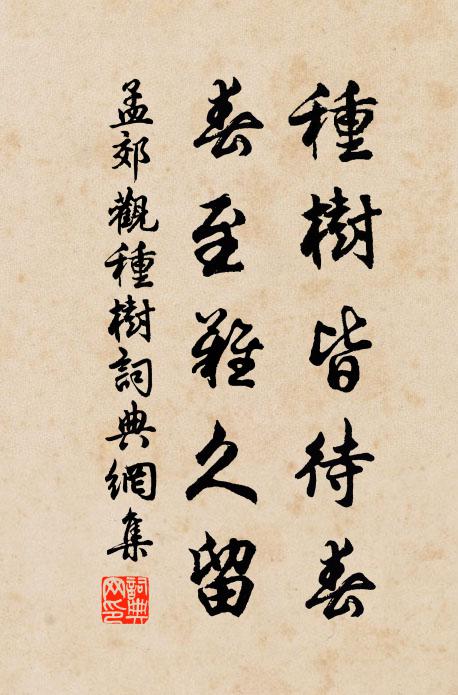 種樹皆待春
春至難久留
孟郊觀種樹詞典網集
詞典網印